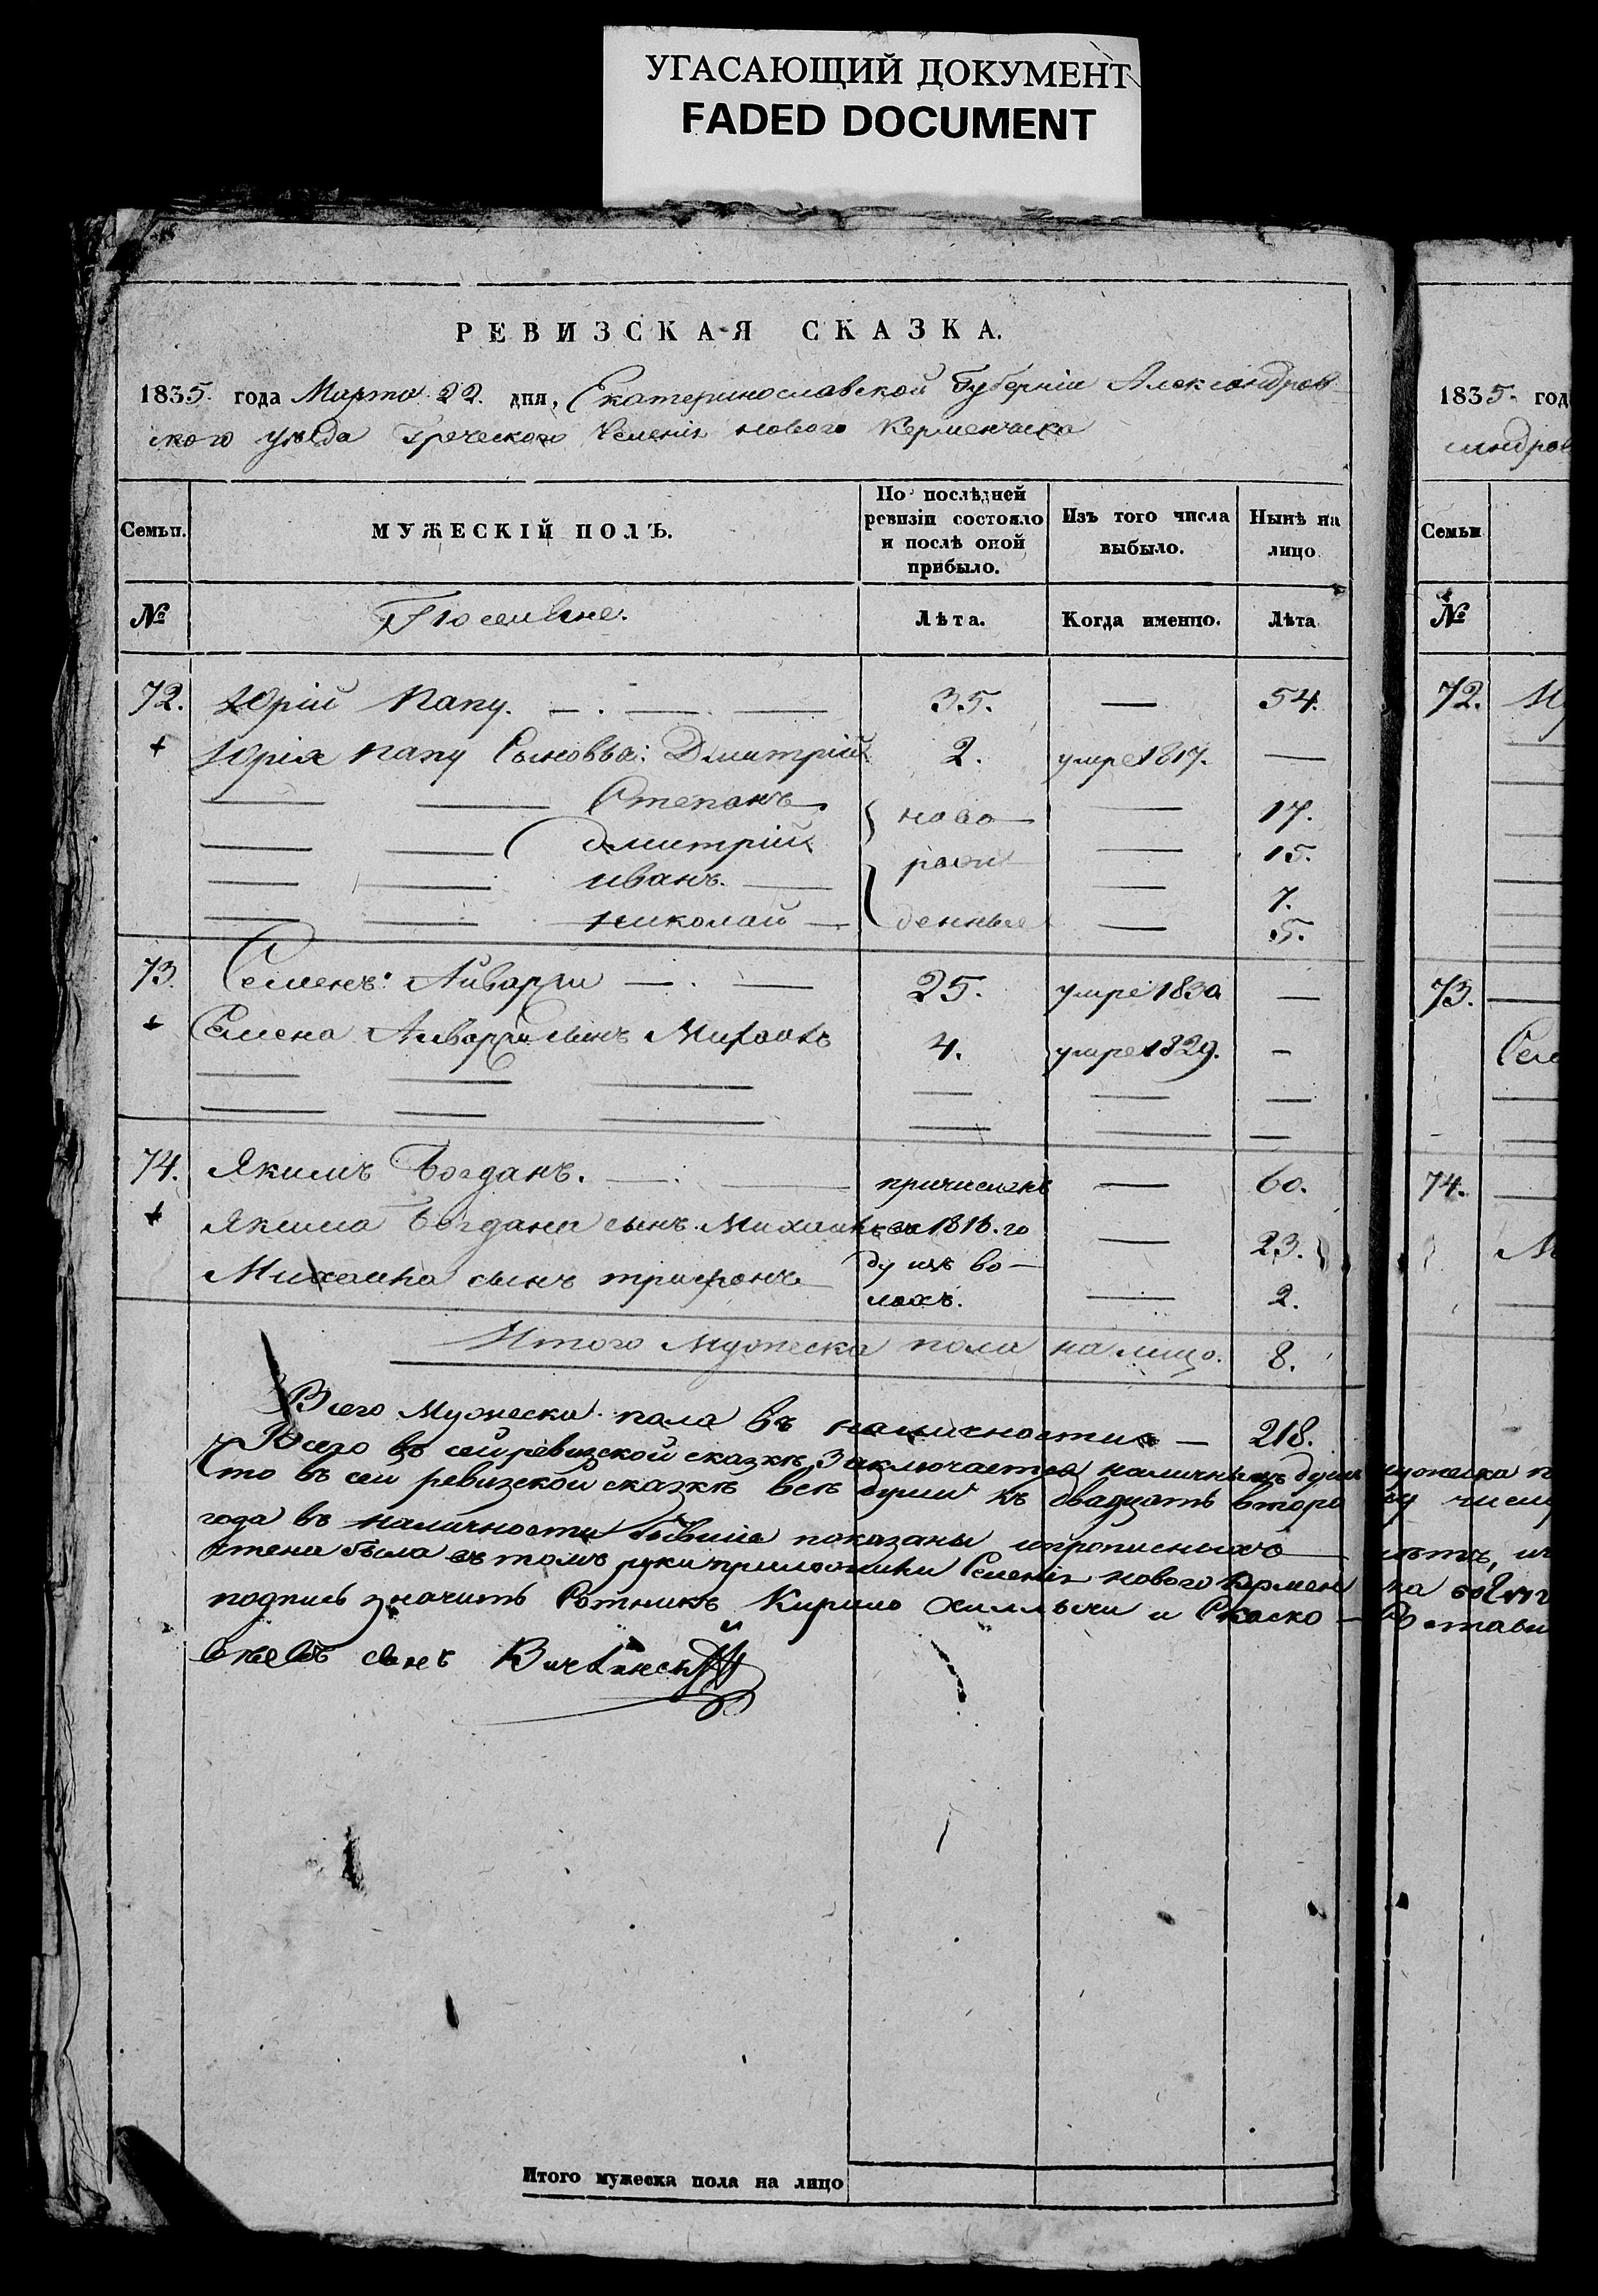 УГАСАЮЩИЙ ДОКУМЕНТ
FADED DOCUMENT
РЕВИЗСКАЯ СКАЗКА.
1835. года Марта 22. дня, Екатеринославской Губерніи Александров
ского уѣзда Греческого Селенія нового Керменчика
Семьи. МУЖЕСКІЙ ПОЛЪ. По послѣдней ревизіи состояло и послѣ оной прибыло. Изъ того числа выбыло. Нынѣ на лицо
№ Поселяне. Лѣта. Когда именно. Лѣта
72. Юрій Папу. 35. — 54.
+ Юрія Папу Сыновья: Дмитрій 2. умре 1817. —
Степанъ ново — 17.
Дмитрій рож — 15.
иванъ. — 7.
николай денные — 5.
73. Семенъ Айваржи 25. умре 1830 —
+ Семена Айваржи сынъ 4. умре 1829. —
74. Якимъ Богданъ. причисленъ — 60.
+ Якима Богдана сынъ Михаилъ въ 1816. го — 23.
ду изъ во
Михаила сынъ трифонъ лохъ. — 2.
Итого Мужеска пола на лицо. 8.
Всего Мужеска пола въ наличности — 218.
Всего въ сей ревизской сказкѣ Заключается наличныхъ душъ мужеска п
что въ сей ревизской сказкѣ всѣ души къ двадцать второ му числу
года въ наличности бывшіе показаны и прописныхъ нѣтъ,
была въ томъ руки приложили Селенія нового Кермен
подпись значитъ Сотникъ Кирило и
сынъ
Итого мужеска пола на лицо
1835. год
сандров
Семьи
№
72.
73.
Сем
74.
М